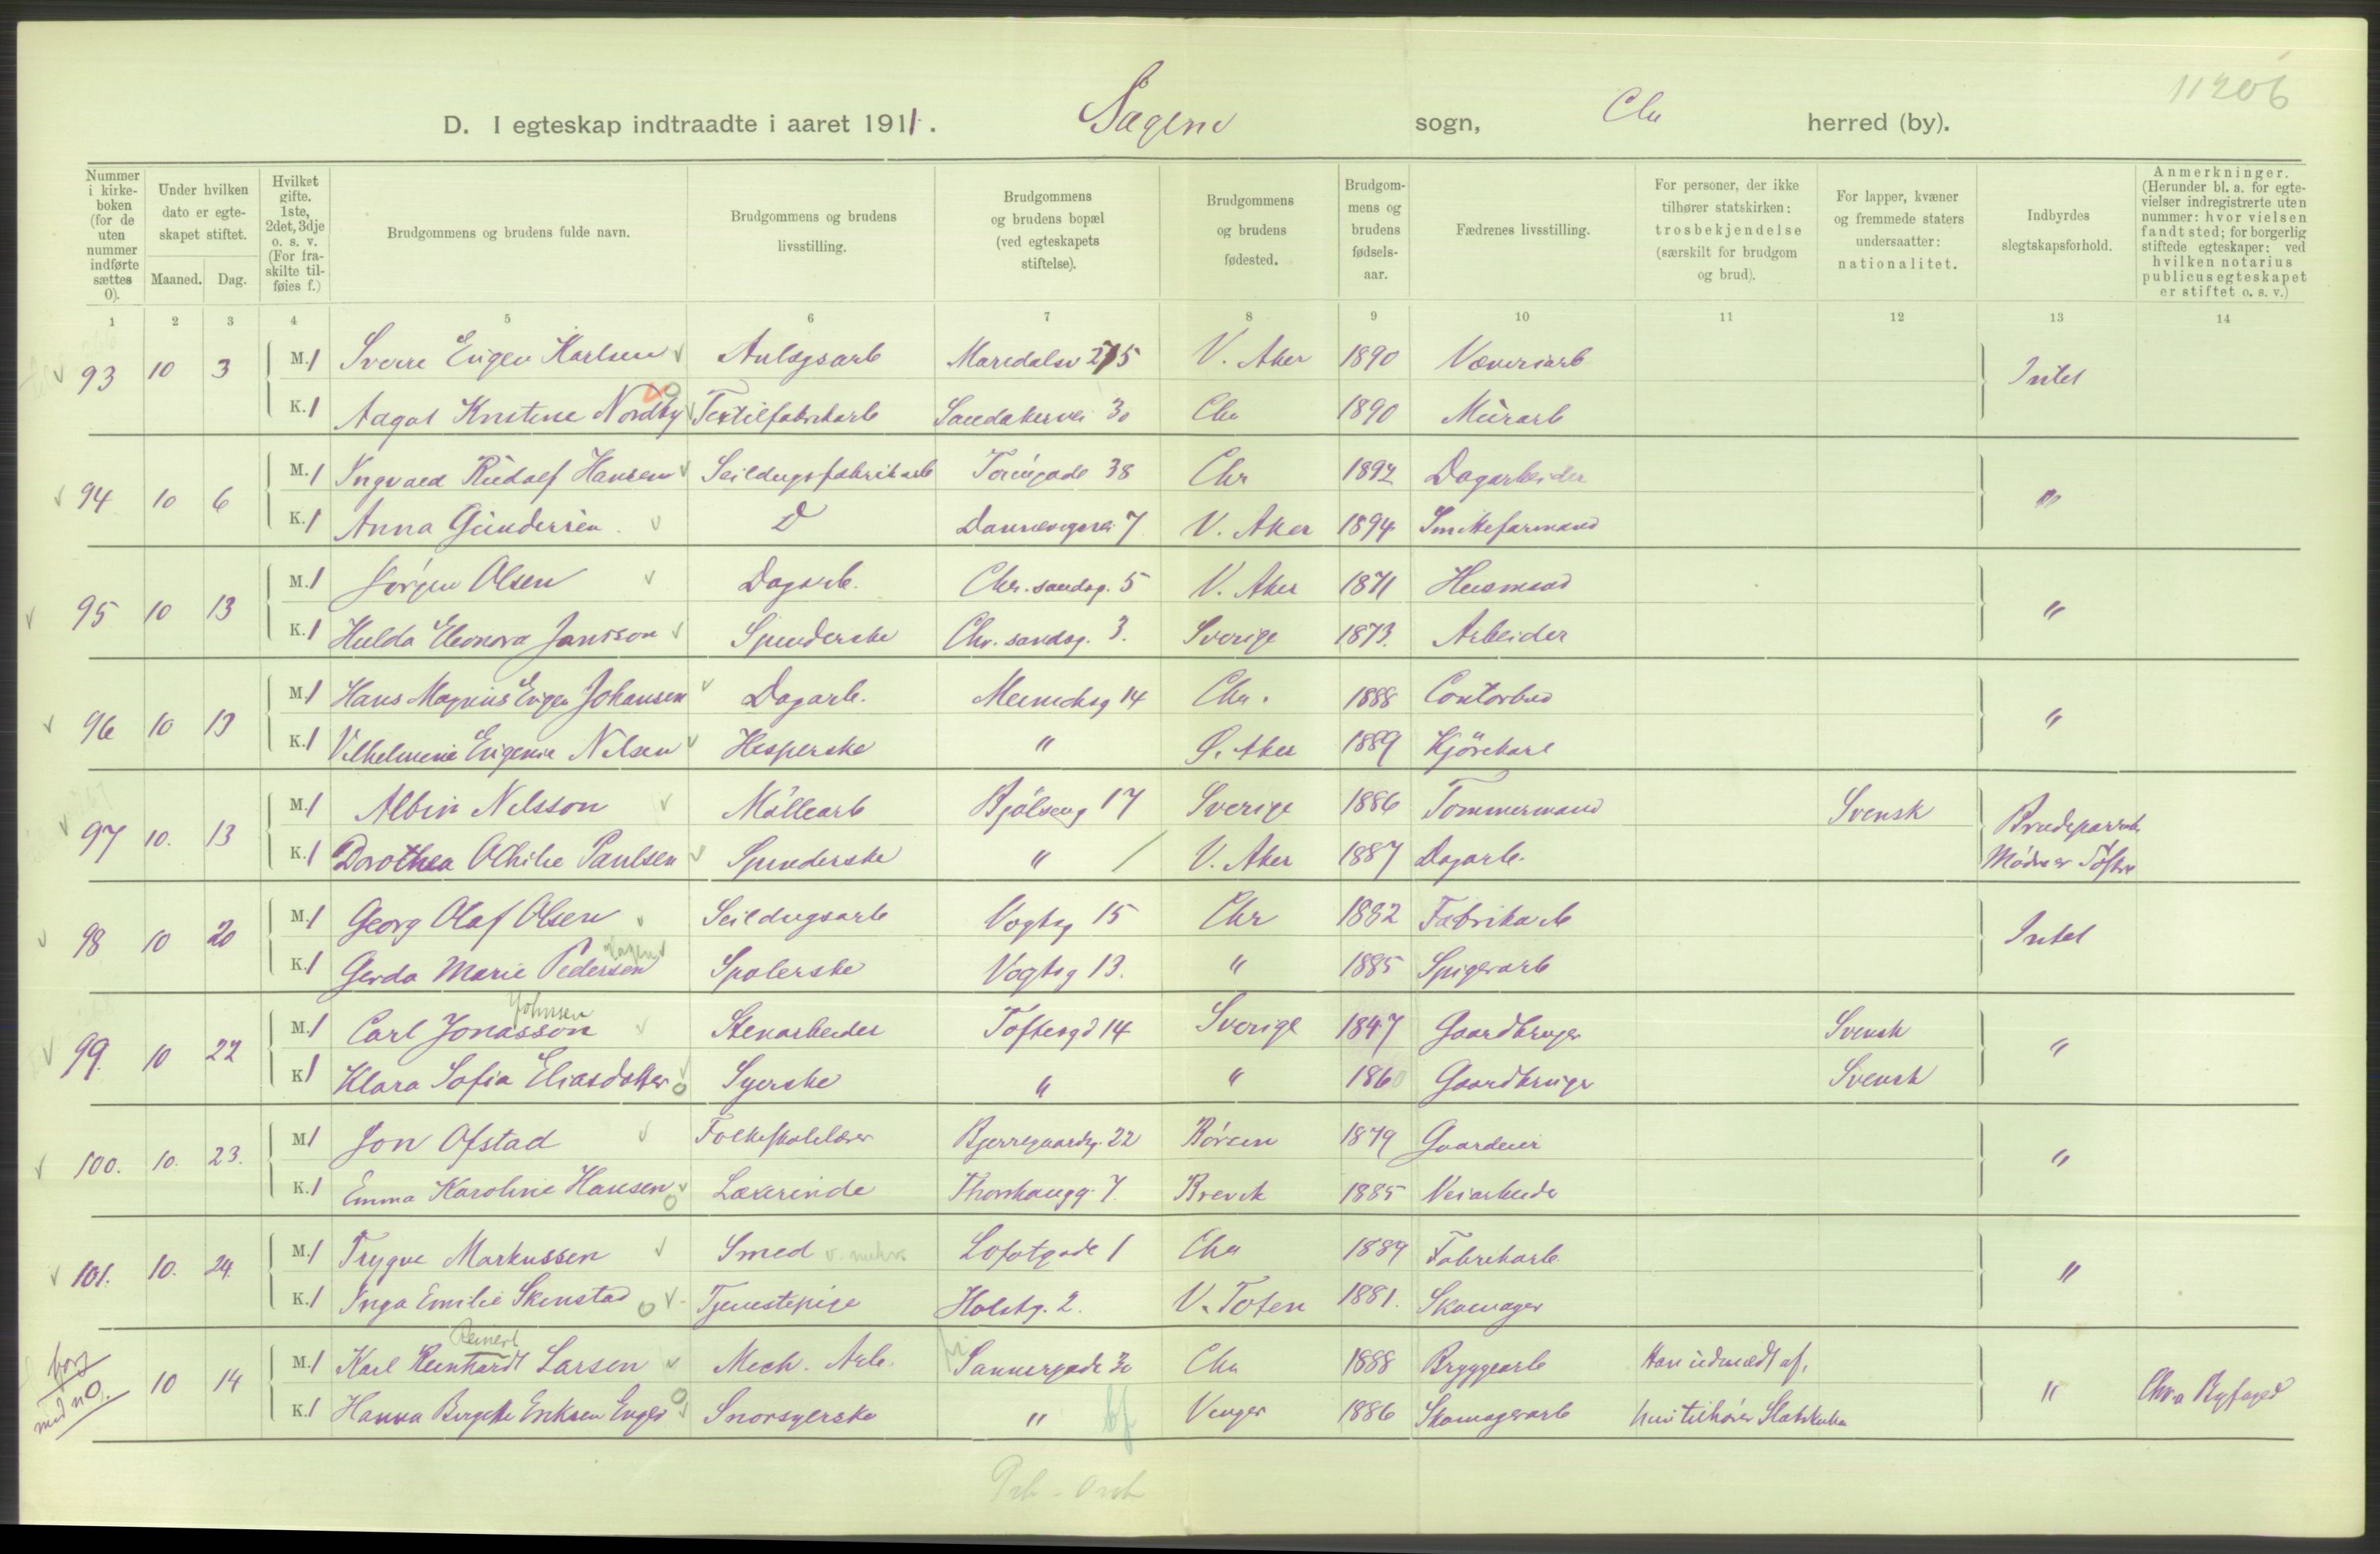 11206
D. I egteskap indtraadte i aaret 1911. Sagene sogn, Chr herred (by).
Nummer i kirkeboken (for de uten nummer indførte sættes 0).
Under hvilken dato er egteskapet stiftet.
Maaned. Dag.
Hvilket gifte. 1ste, 2det, 3dje o. s. v. (For fraskilte tilføies f.)
Brudgommens og brudens fulde navn.
Brudgommens og brudens livsstilling.
Brudgommens og brudens bopæl (ved egteskapets stiftelse).
Brudgommens og brudens fødested.
Brudgommens og brudens fødselsaar.
Fædrenes livsstilling.
For personer, der ikke tilhører statskirken: trosbekjendelse (særskilt for brudgom og brud).
For lapper, kvæner og fremmede staters undersaatter: nationalitet.
Indbyrdes slegtskapsforhold.
Anmerkninger. (Herunder bl. a. for egtevielser indregistrerte uten nummer: hvor vielsen fandt sted; for borgerlig stiftede egteskaper: ved hvilken notarius publicus egteskapet er stiftet o. s. v.)
1 2 3 4 5 6 7 8 9 10 11 12 13 14
93 10 3 M. 1 Sverre Eugen Karlsen Anlægsarb Maridalsv 275 V. Aker 1890 Væveriarb Intet
K. 1 Aagot Kristine Nordby Textilfabrikarb Sandakervei 30 Chr 1890 Murarb
94 10 6 M. 1 Ingvald Rudolf Hansen Seildugsfabrikarb Torüpgade 38 Chr 1892 Dagarbeider "
K. 1 Anna Gundersen D Dannevigsvei 7 V. Aker 1894 Smittefarmand
95 10 13 M. 1 Jörgen Olsen Dagarb. Chr.sandsg. 5 V. Aker 1871 Husmand "
K. 1 Hulda Eleonora Jansson Spinderske Chr.sandsg. 3. Sverige 1873. Arbeider
96 10 13 M. 1 Hans Magnus Eugen Johansen Dagarb. Meinichsg 14 Chr. 1888 Contorbud "
K. 1 Vilhelmine Eugenie Nilsen Hesperske " Ø. Aker 1889 Kjörekarl
97 10. 13 M. 1 Albin Nilsson Möllearb Bjölseng 17 Sverige 1886 Tømmermand Svensk Brudeparrets
K. 1 Dorothea Othilie Paulsen Spinderske " V. Aker 1887 Dagarb. Mødre er Søstre
98 10 20 M. 1 Georg Olaf Olsen Seildugsarb Vogtsg 15 Chr 1882 Fabrikarb Intet
K. 1 Gerda Marie Pedersen Spolerske Vogtsg 13. " 1885 Spigerarb
Johnsen
99. 10 22 M. 1 Carl Jonasson Stenarbeider Toftesgd 14 Sverige 1847 Gaardbruger Svensk "
K 1 Klara Sofia Eliasdotter Syerske " " 1860 Gaardbruger Svensk
100. 10. 23. M 1 Jon Ofstad Folkeskolelærer Bjerregaardsg. 22 Börsen 1879 Gaardeier "
K. 1 Emma Karoline Hansen Lærerinde Thorshaugg. 7. Brevik 1885 Veiarbeider
101. 10. 24. M. 1 Trygve Markussen Smed v. mekv. Lofotgade 1 Chr 1889 Fabrikarb "
K. 1 Inga Emilie Skinstad Tjenestepige Holstg. 2. V. Toten 1881. Skomager
Reinert
borg med no. 10 14 M. 1 Karl Reinhardt Larsen Mech. Arb. Sannergade 30 Chr 1888 Bryggearb Han udmeldt af, "
K. 1 Hanna Birgitte Eriksen Enger Snorsyerske " bf Vinger 1886 Skomagerarb hun tilhører Statskirken Chr.a Byfoged